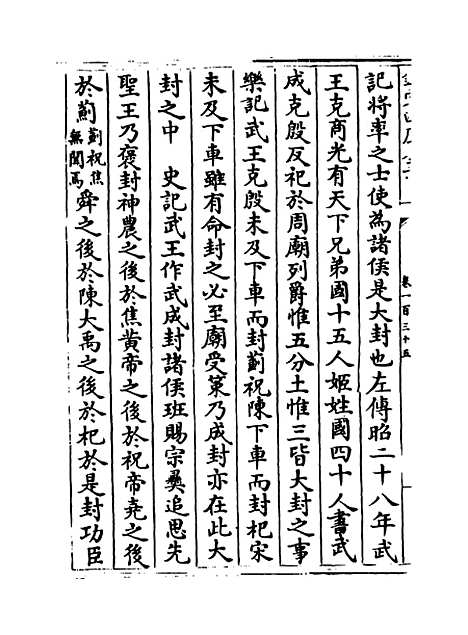 卷一百三十五
記將率之士使為諸侯是大封也左傳昭二十八年武
王克商光有天下兄弟國十五人姬姓國四十人書武
成克殷反祀於周廟列爵惟五分土惟三皆大封之事
樂記武王克殷未及下車而封薊祝陳下車而封杞宋
未及下車雖有命封之必至廟受策乃成封亦在此大
封之中　史記武王作武成封諸侯班賜宗彝追思先
聖王乃褒封神農之後於焦黃帝之後於祝帝堯之後
於薊薊祝焦無聞焉舜之後於陳大禹之後於杞於是封功臣